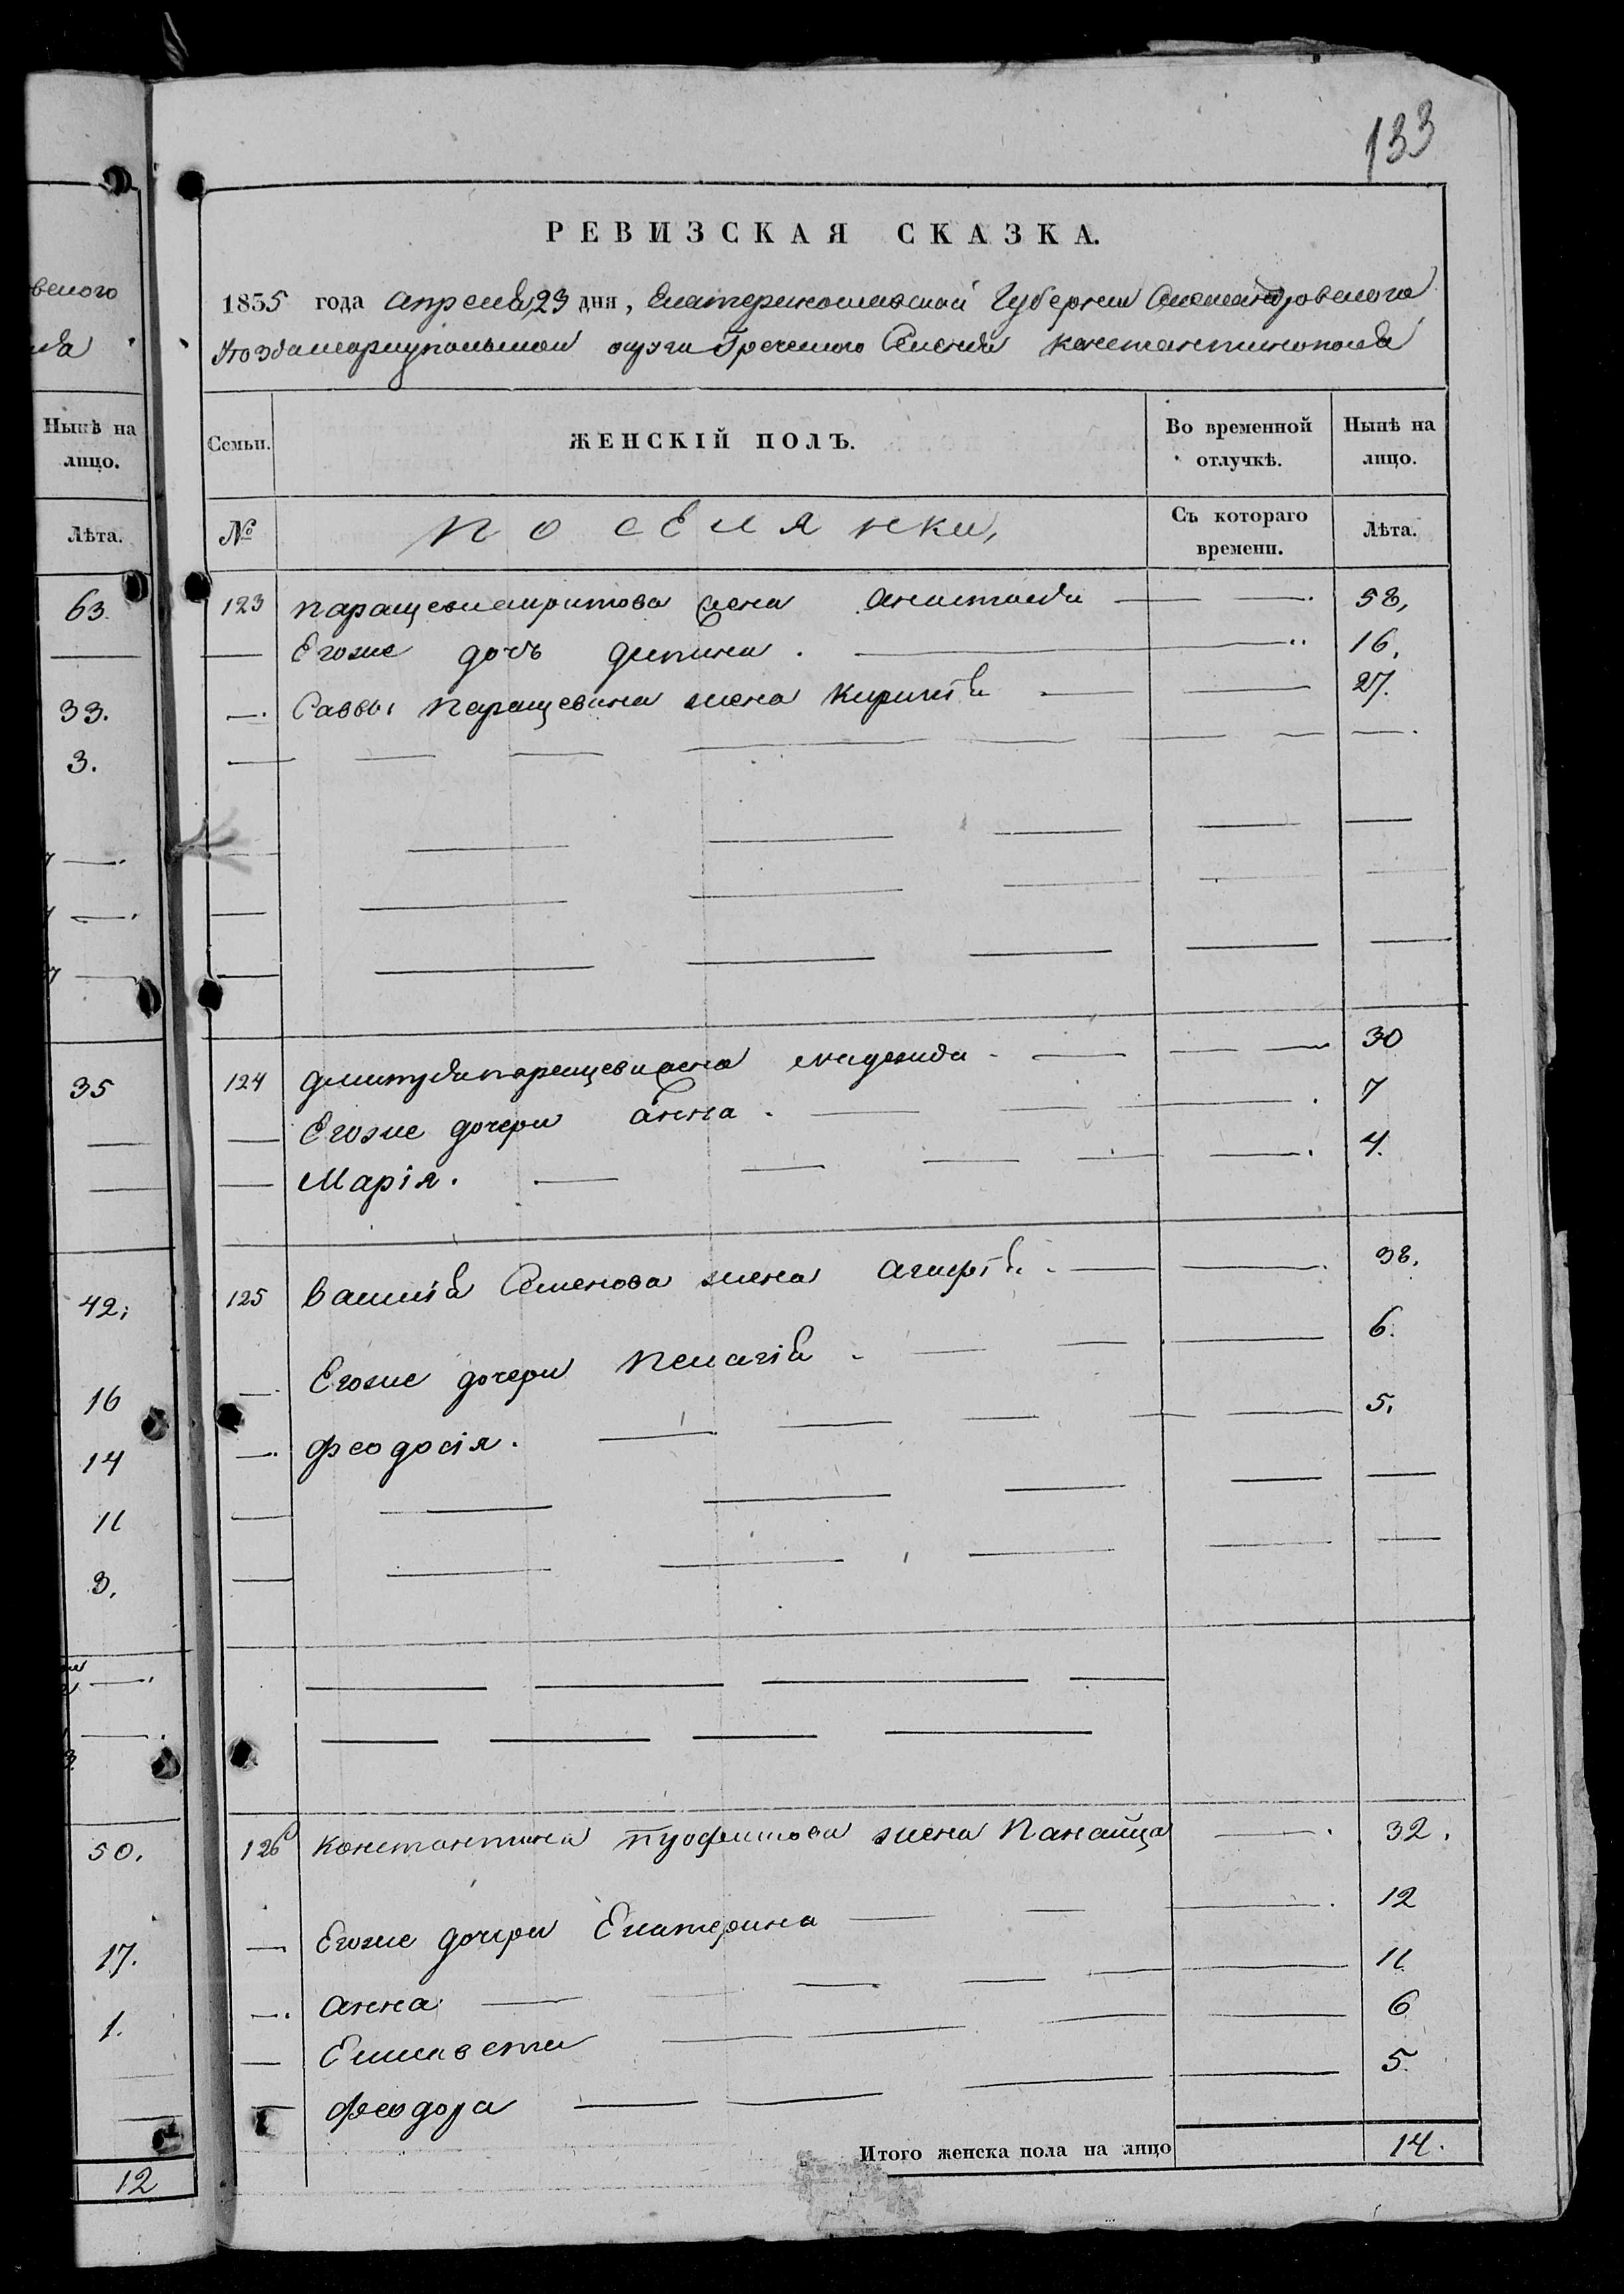 133
РЕВИЗСКАЯ СКАЗКА.
1835 года Апреля 23 дня, Екатеринославской Губернии Александровского
Уезда Мариупольской округи Греческого Селения Константинополя
веного
Нынѣ на лицо.
Лѣта.
63.
33.
3.
35
42.
16
14
11
3.
50.
17.
1.
12
Семьи. ЖЕНСКІЙ ПОЛЪ. Во временной отлучкѣ. Нынѣ на лицо.
№ Поселянки, Съ котораго времени. Лѣта.
123 жена Анастасія 58,
Егоже дочь 16.
Саввы Паращевина жена Киріакія 27.
124 Дмитрія Паращеви жена Надежда 30
Егоже дочери Анна. 7
Марія. 4.
125 Василія Семенова жена Агафія 38.
Егоже дочери Пелагія 6.
Феодосія. 5.
126 Константина жена Панаица 32.
Егоже дочери Екатерина 12
Анна 11
Елисавета 6
Феодора 5.
Итого женска пола на лицо 14.